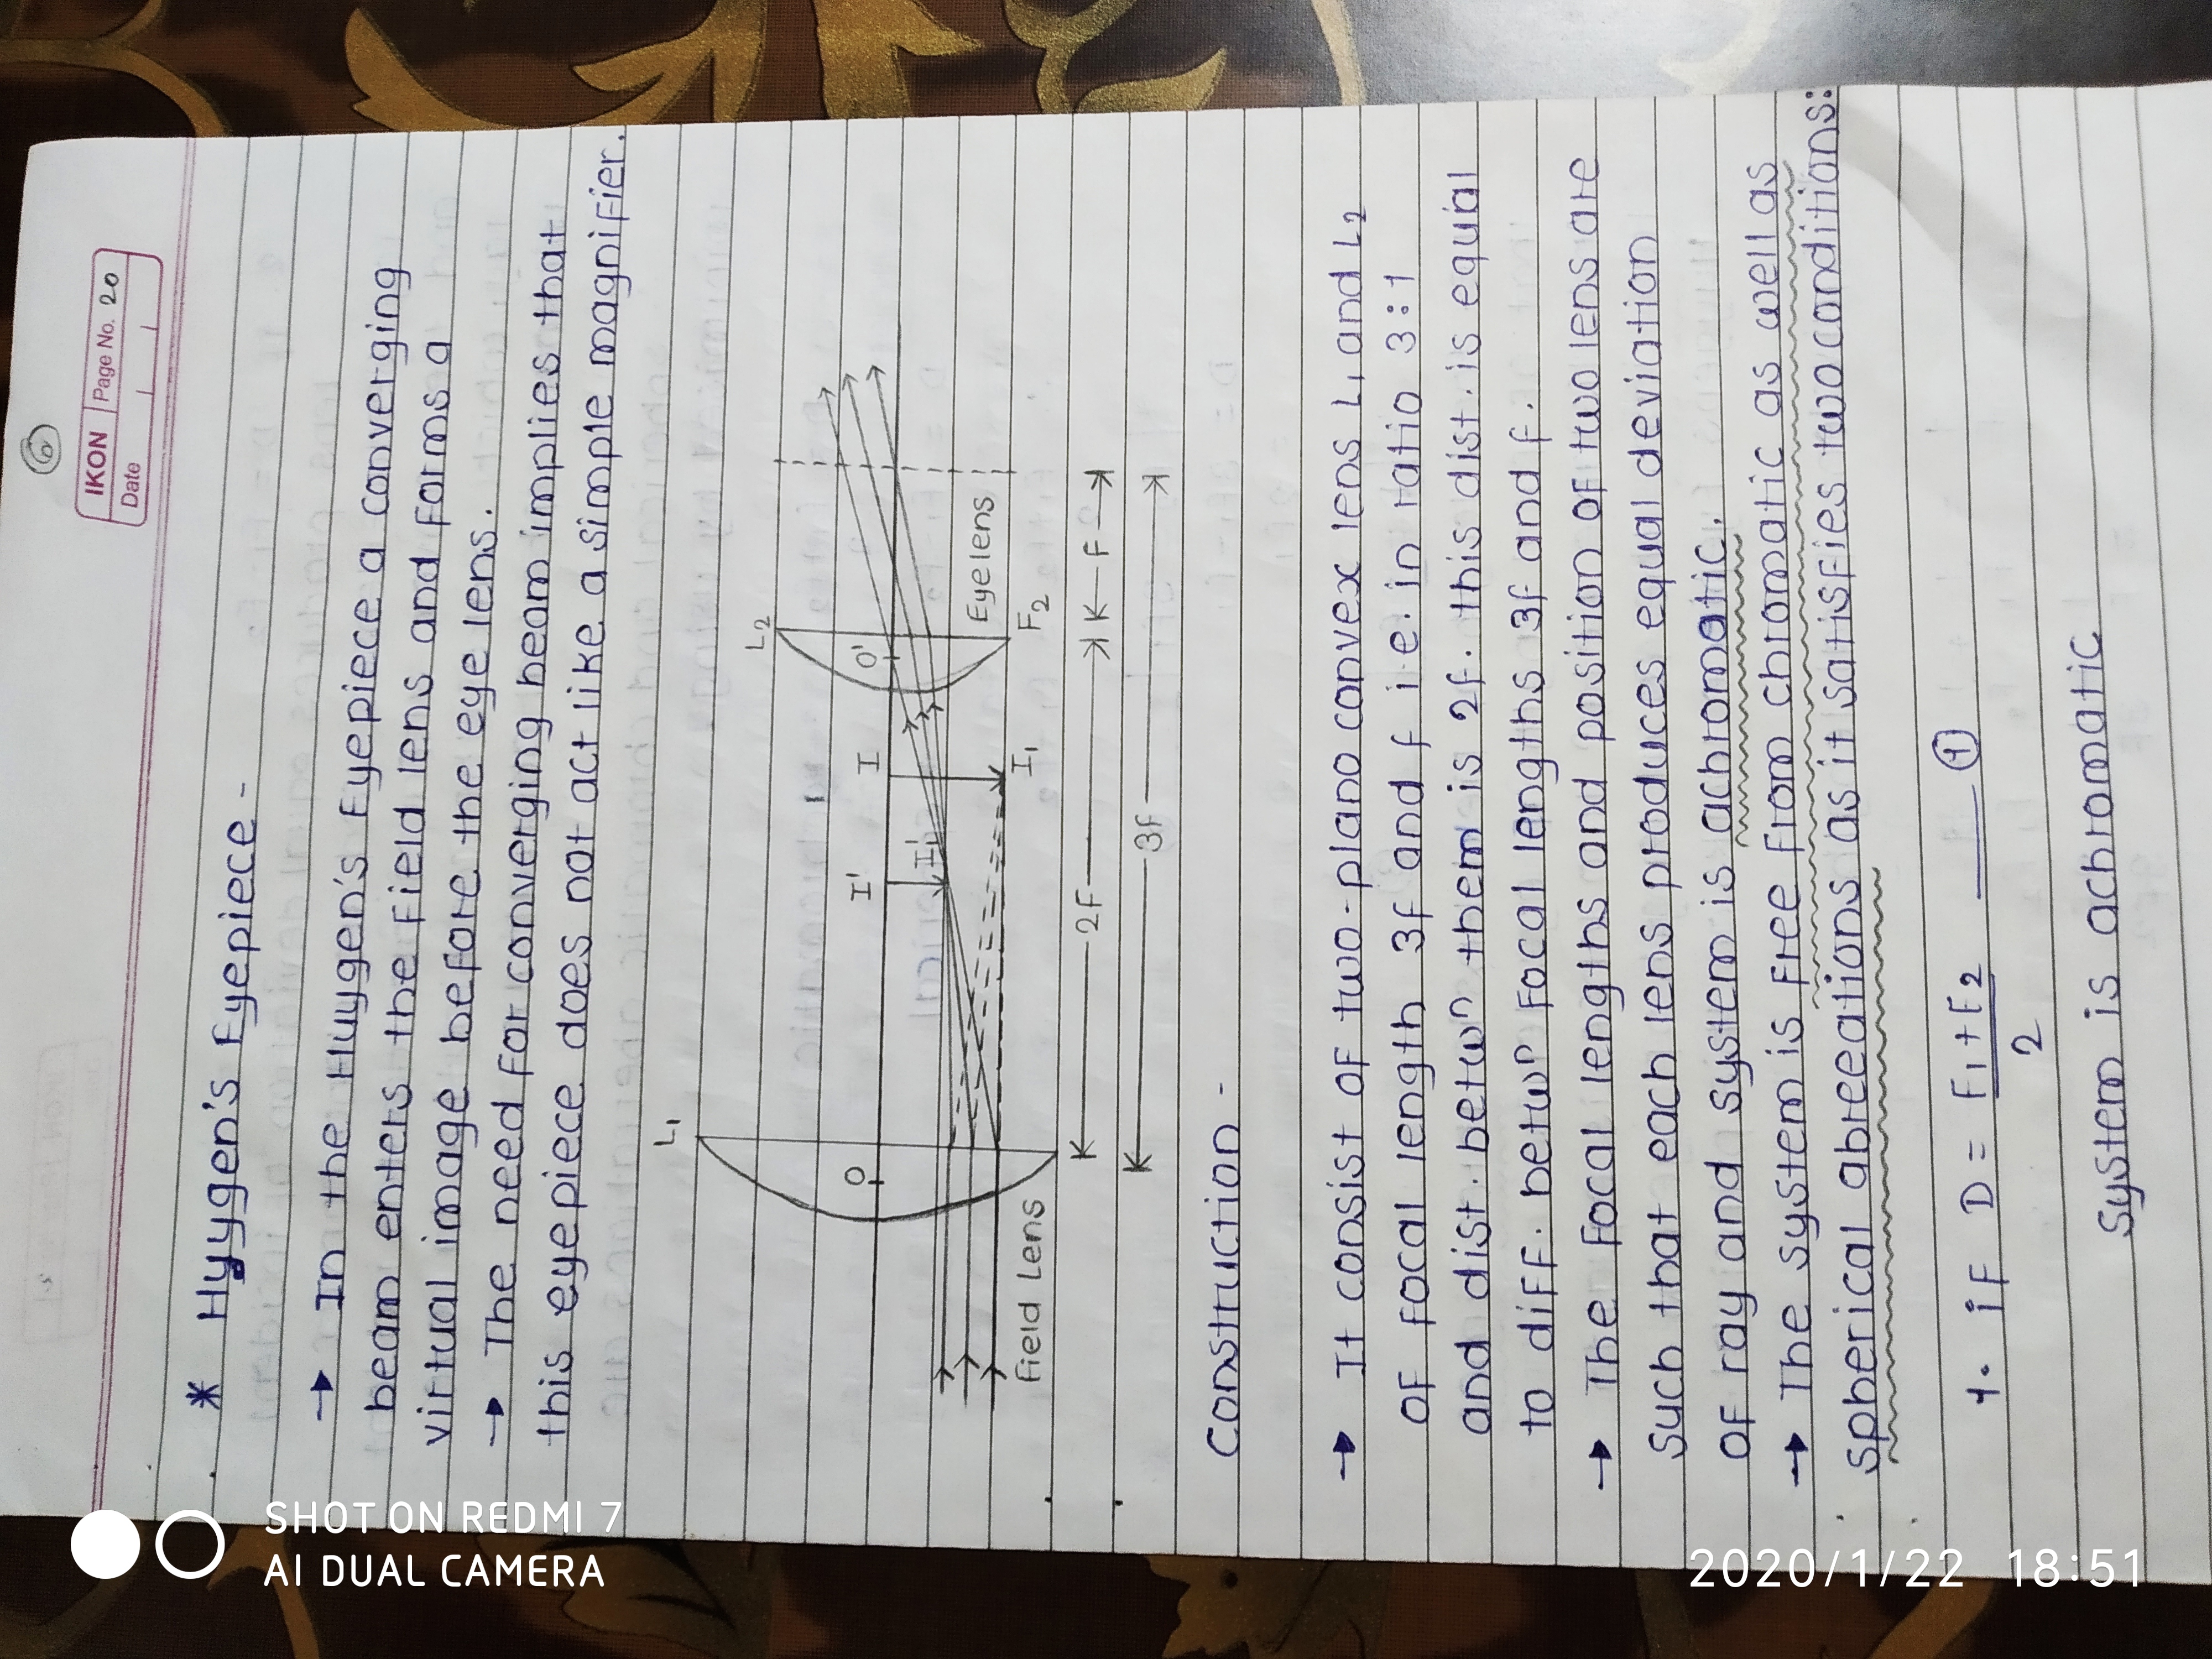 6
IKON Page No. 20
Date
* Huygen's Eyepiece -
→ In the Huygen's Eyepiece a converging
beam enters the field lens and forms a
virtual image before the eye lens.
→ The need for converging beam implies that
this eyepiece does not act like a simple magnifier.
L1
L2
O
I'
I
O'
I'1
I1
Field Lens
Eye lens
F2
2F
F
3F
Construction -
→ It consist of two-plano convex lens L1 and L2
of focal length 3f and f i.e. in ratio 3:1
and dist. betwn them is 2f. this dist. is equal
to diff. betwn focal lengths 3f and f.
→ The focal lengths and position of two lens are
such that each lens produces equal deviation
of ray and system is achromatic.
→ The system is free from chromatic as well as
spherical abreeations as it satisfies two conditions:
1. if D = F1+F2 / 2 ___ 1
System is achromatic
SHOT ON REDMI 7
AI DUAL CAMERA
2020/1/22 18:51